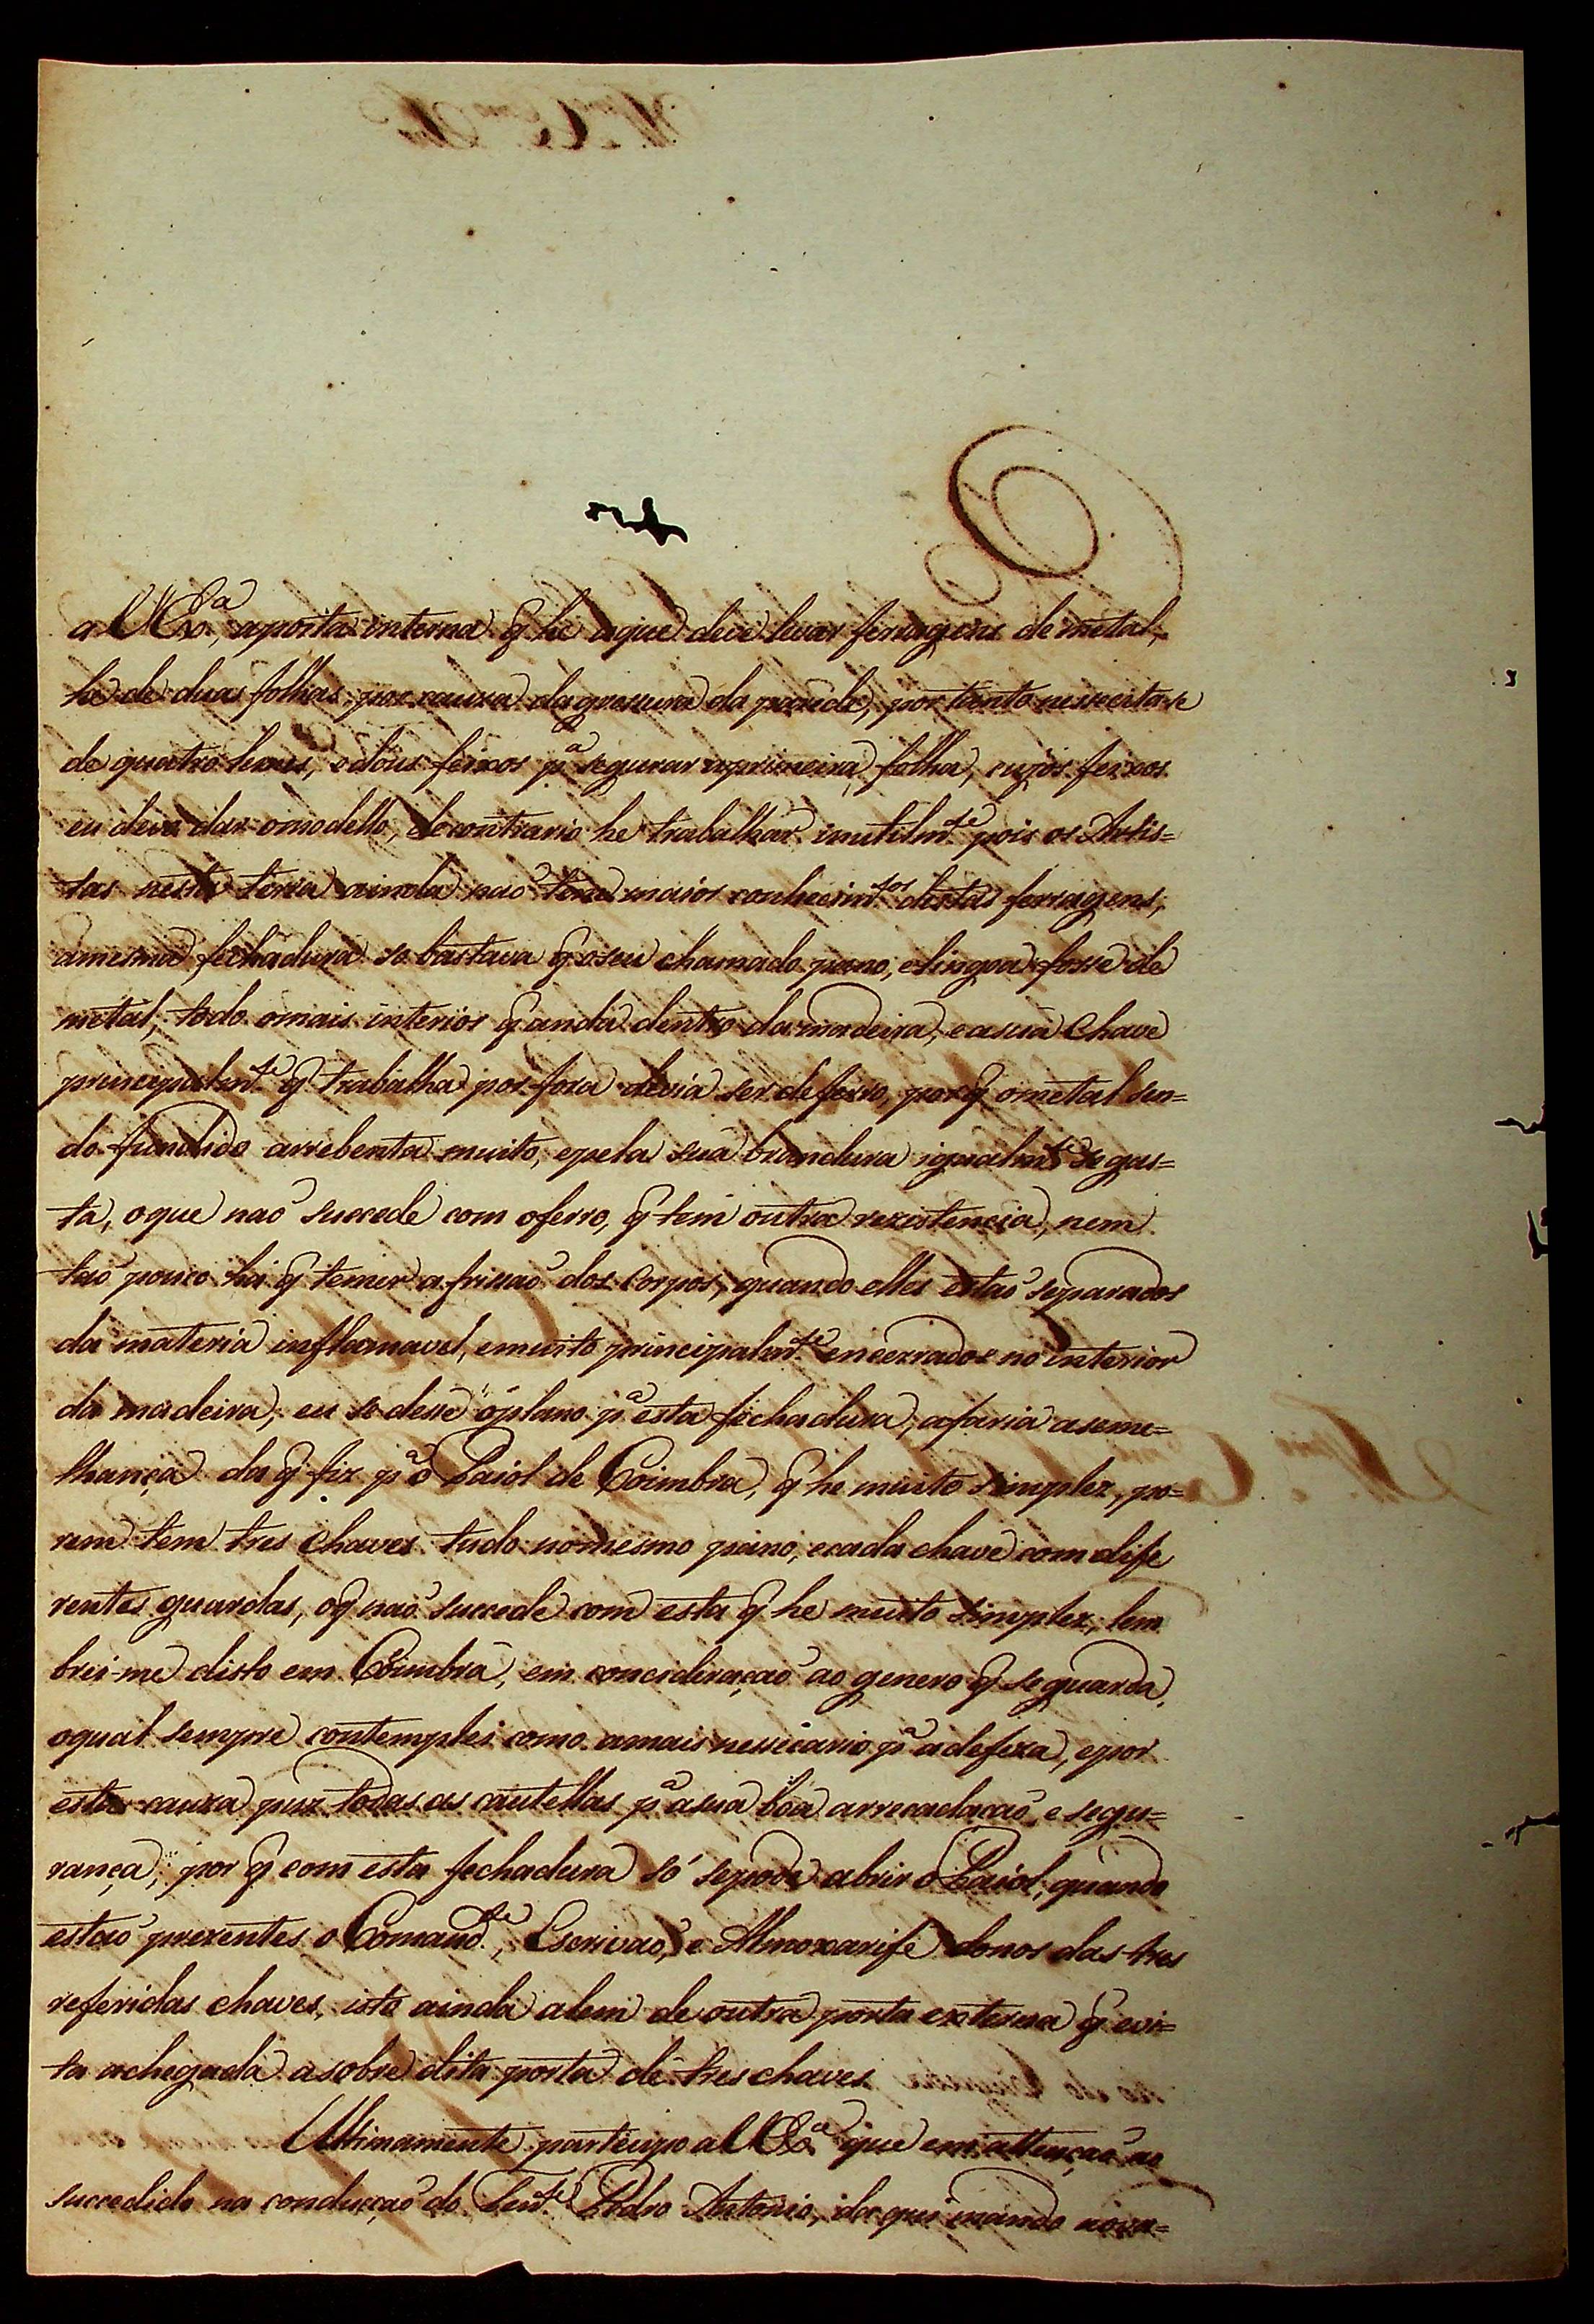 a V Ex.ª, aporta interna q̃ he aque deve levar ferragens de metal,
he de duas folhas por cauza dagrossura da parede, por tanto nessecita-se
de quatro lemes, edóus feixos p.ª segurar aprimeira folha, cujos feixos
eu devo dar omodello, decontrario he trabalhar inutilm.te pois os Artis=
tas nesta terra ainda naõ tem maior conhecim.tos destas ferragens,
amesma fechadura so bastava q̃ oseu chamado pano, elingoa fosse de
metal, todo omais interior q̃ anda dentro da madeira, easua Chave
principalm.te q̃ trabalha por fora devia ser deferro, por q̃ ometal sen=
do fundido arrebenta muito, epela sua brandura igualm.te se gas=
ta, oque naõ succede com oferro, q̃ tem outra rezistencia, nem
taõ pouco há q̃ temer afrissaõ dos Corpos, quando elles estaõ separados
da materia inflamavel, emuito principalm.te encerrados no interior
da madeira, eu se desse óplano p.ª esta fechadura, afaria aseme=
lhança da q̃ fiz p.ª o Paiol de Coimbra, q̃ he muito simplez, po=
rem tem tres Chaves tudo nomesmo pano, ecada chave com dife
rentes guardas, oq̃ naõ succede com esta q̃ he muito simplez, lem
brei-me disto em Coimbra, em conciderações ao genero q̃ se guarda,
oqual sempre contemplei como amais nessicario p.ª adefeza, epor
esta cauza puz todas as cautellas p.ª asua bóa arrecadacaõ, e segu=
rança, por q̃ com esta fechadura só sepode abrir o Paiol, quando
estaõ prezentes o Comand.te, Escrivaõ, e Almoxarife donos das tres
referidas chaves, isto ainda alem de outra porta externa q̃ evi=
ta achegada asobre dita porta de tres chaves.
Ultimamente participo a V Ex.ª que em attençaõ ao
succedido na conducçaõ do Ten.te Pedro Antonio, daqui mando nova=